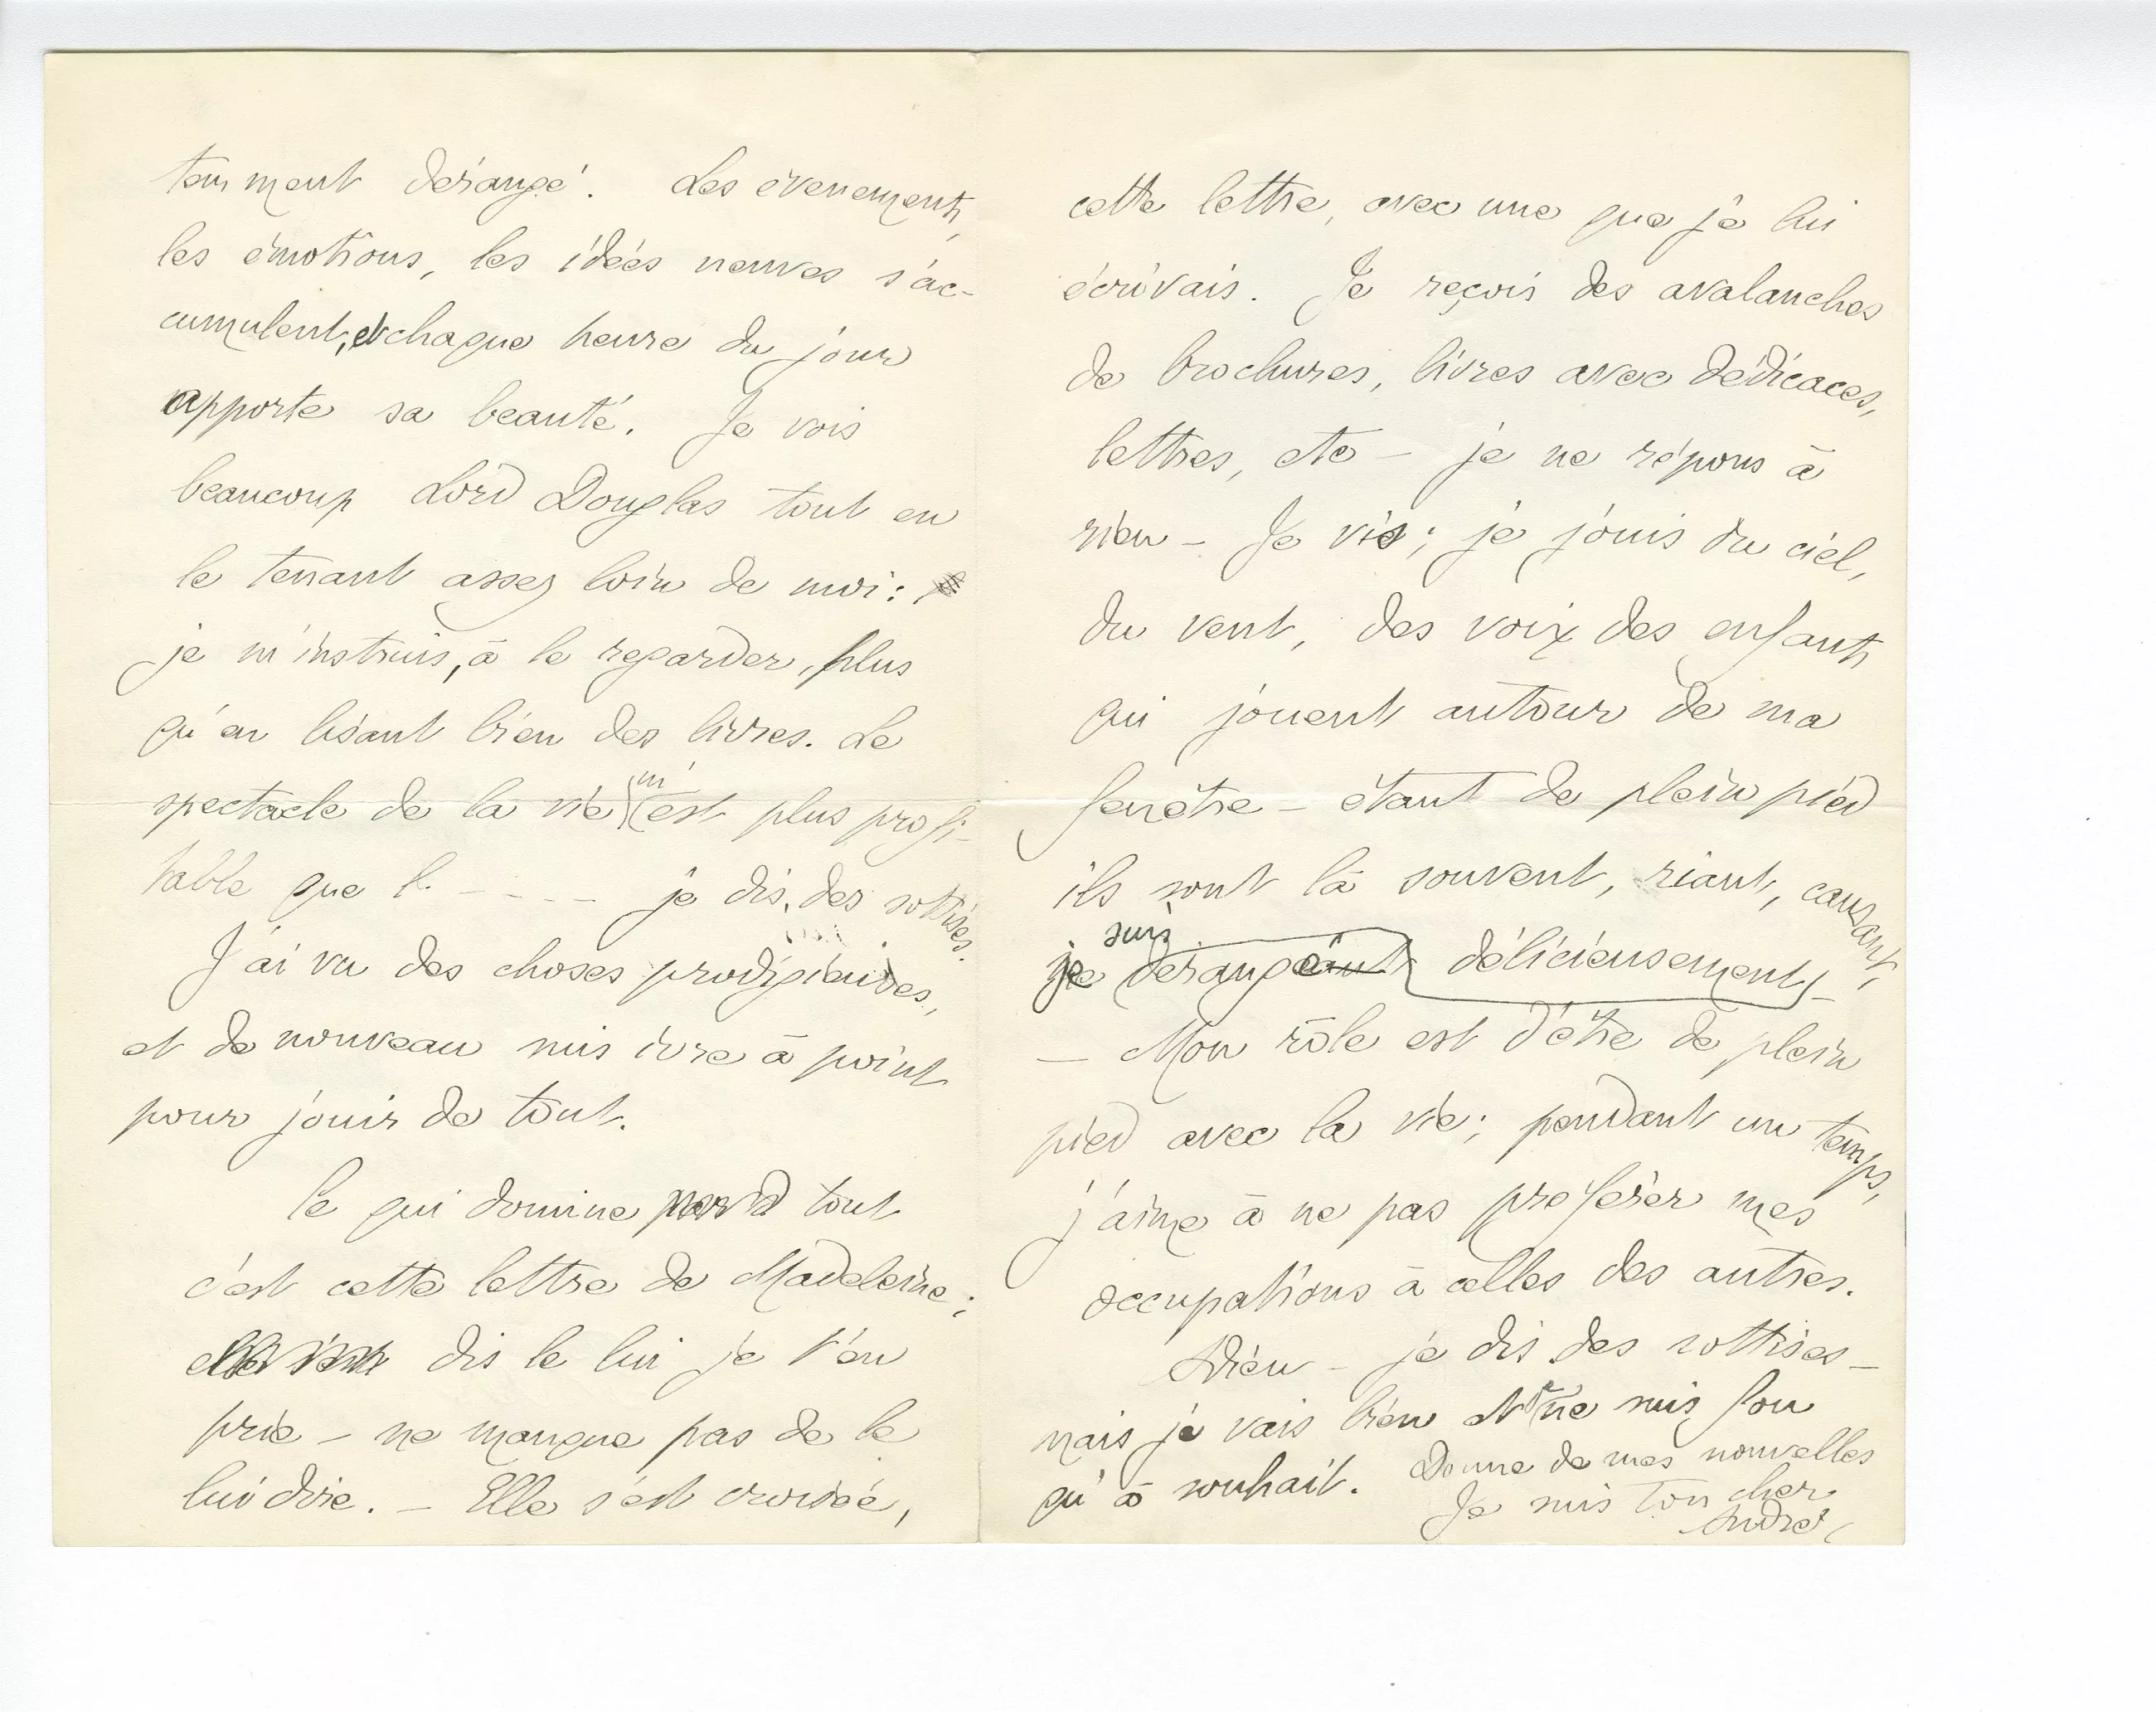 tamment dérangé. Les évenements,
les émotions, les idées neuves s'ac-
cumulent, et chaque heure du jour
apporte sa beauté. Je vois
beaucoup Lord Douglas tout en
le tenant assez loin de moi :
je m'instruis, à le regarder, plus
qu'en lisant bien des livres. Le
spectacle de la vie m'est plus profi-
table que l. - - - - je dis des sottises.
J'ai vu des choses prodigieuses,
et de nouveau suis ivre à point
pour jouir de tout.
Ce qui domine tout
c'est cette lettre de Madeleine ;
dis le lui je t'en
prie – ne manque pas de le
lui dire. – Elle s'est croisée,
cette lettre, avec une que je lui
écrivais. Je reçois des avalanches
de brochures, livres avec dédicaces,
lettres, etc – je ne répons à
rien – Je vis ; je jouis du ciel,
du vent, des voix des enfants
qui jouent autour de ma
fenêtre – étant de plein pied
ils sont là souvent, riant, causant,
je suis dérangé délicieusement –
– Mon rôle est d'être de plein
pied avec la vie ; pendant un temps,
j'aime à ne pas preférer mes
occupations à celles des autres.
Adieu – je dis des sottises –
mais je vais bien et ne suis fou
qu'à souhait. Donne de mes nouvelles
Je suis ton cher
André